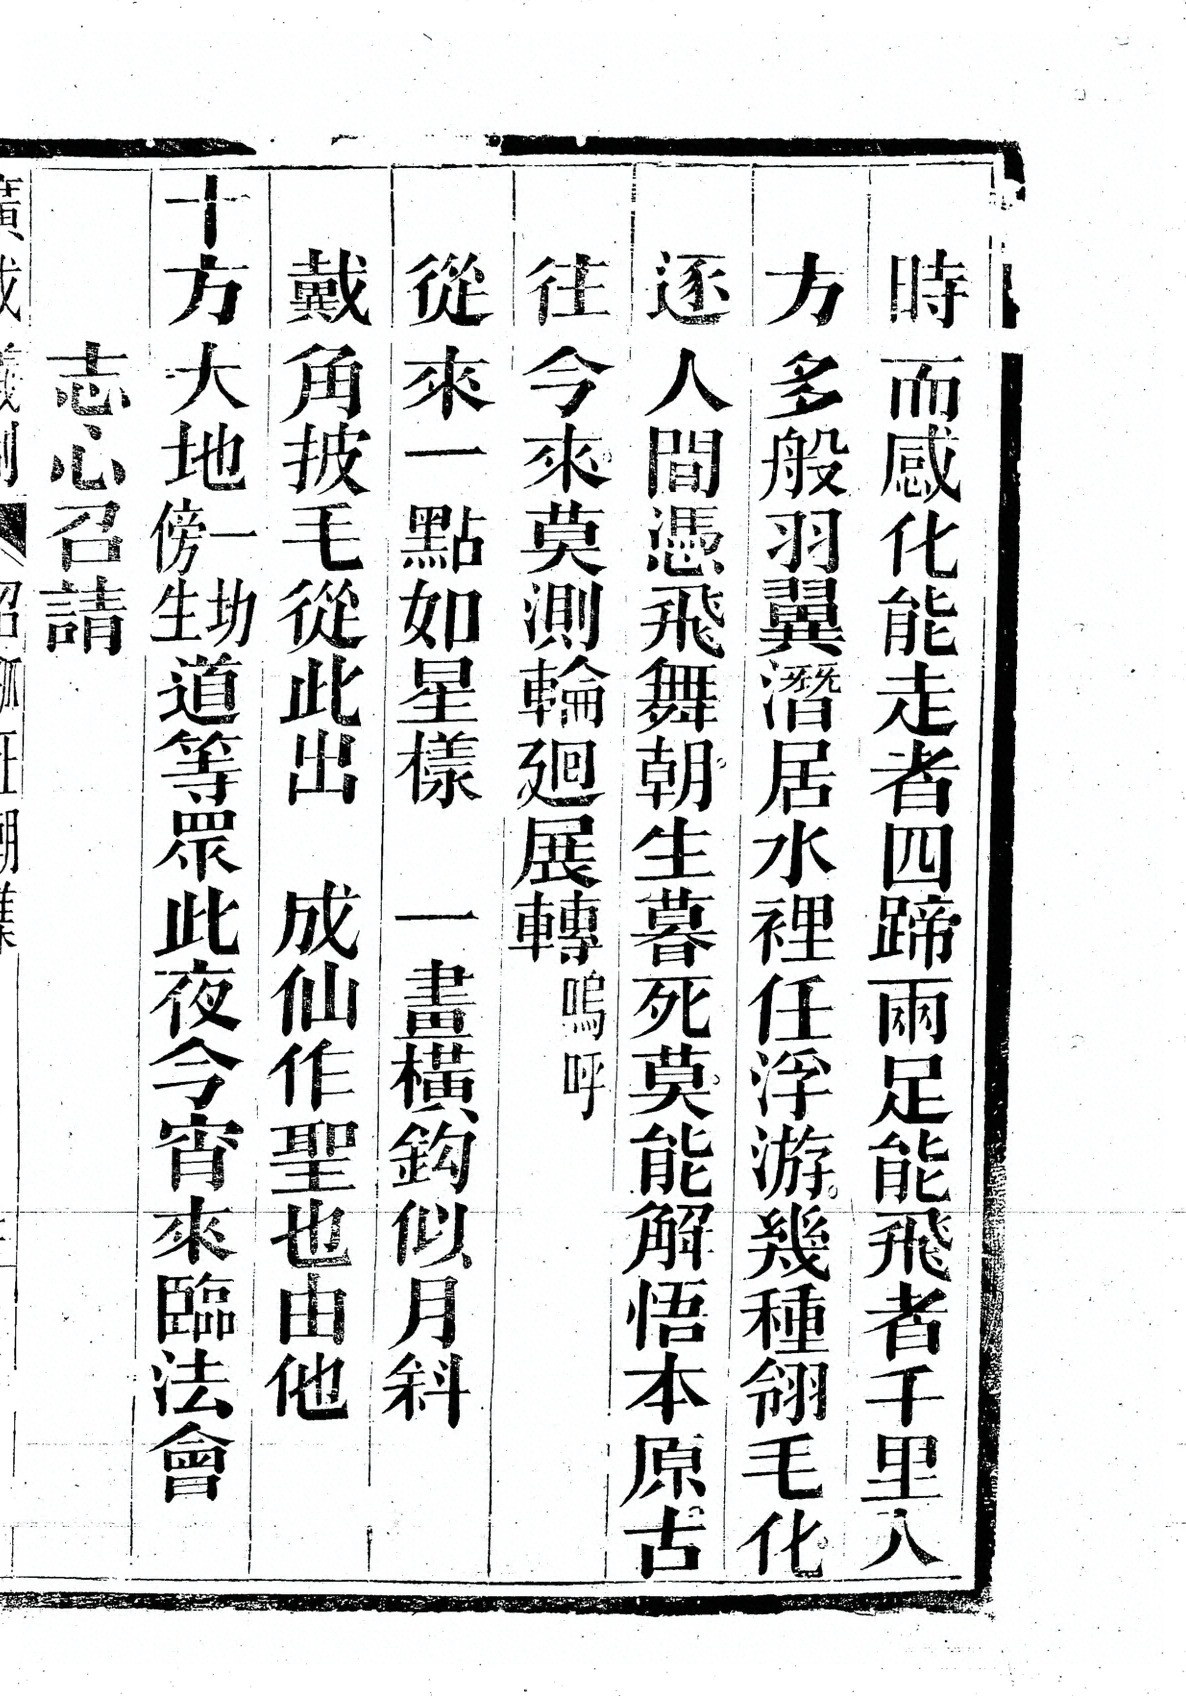 時而感化能走者四蹄兩足能飛者千里八
方多般羽翼潛居水裡任浮游。幾種翎毛化。
逐人間憑飛舞朝。生暮死莫。能解悟本原。古
往今來。莫測輪廻展轉嗚呼
從來一點如星樣　一畫橫鈎似月斜
戴角披毛從此出　成仙作聖也由他
十方大地一切傍生道等眾此夜今宵來臨法會
志心召請